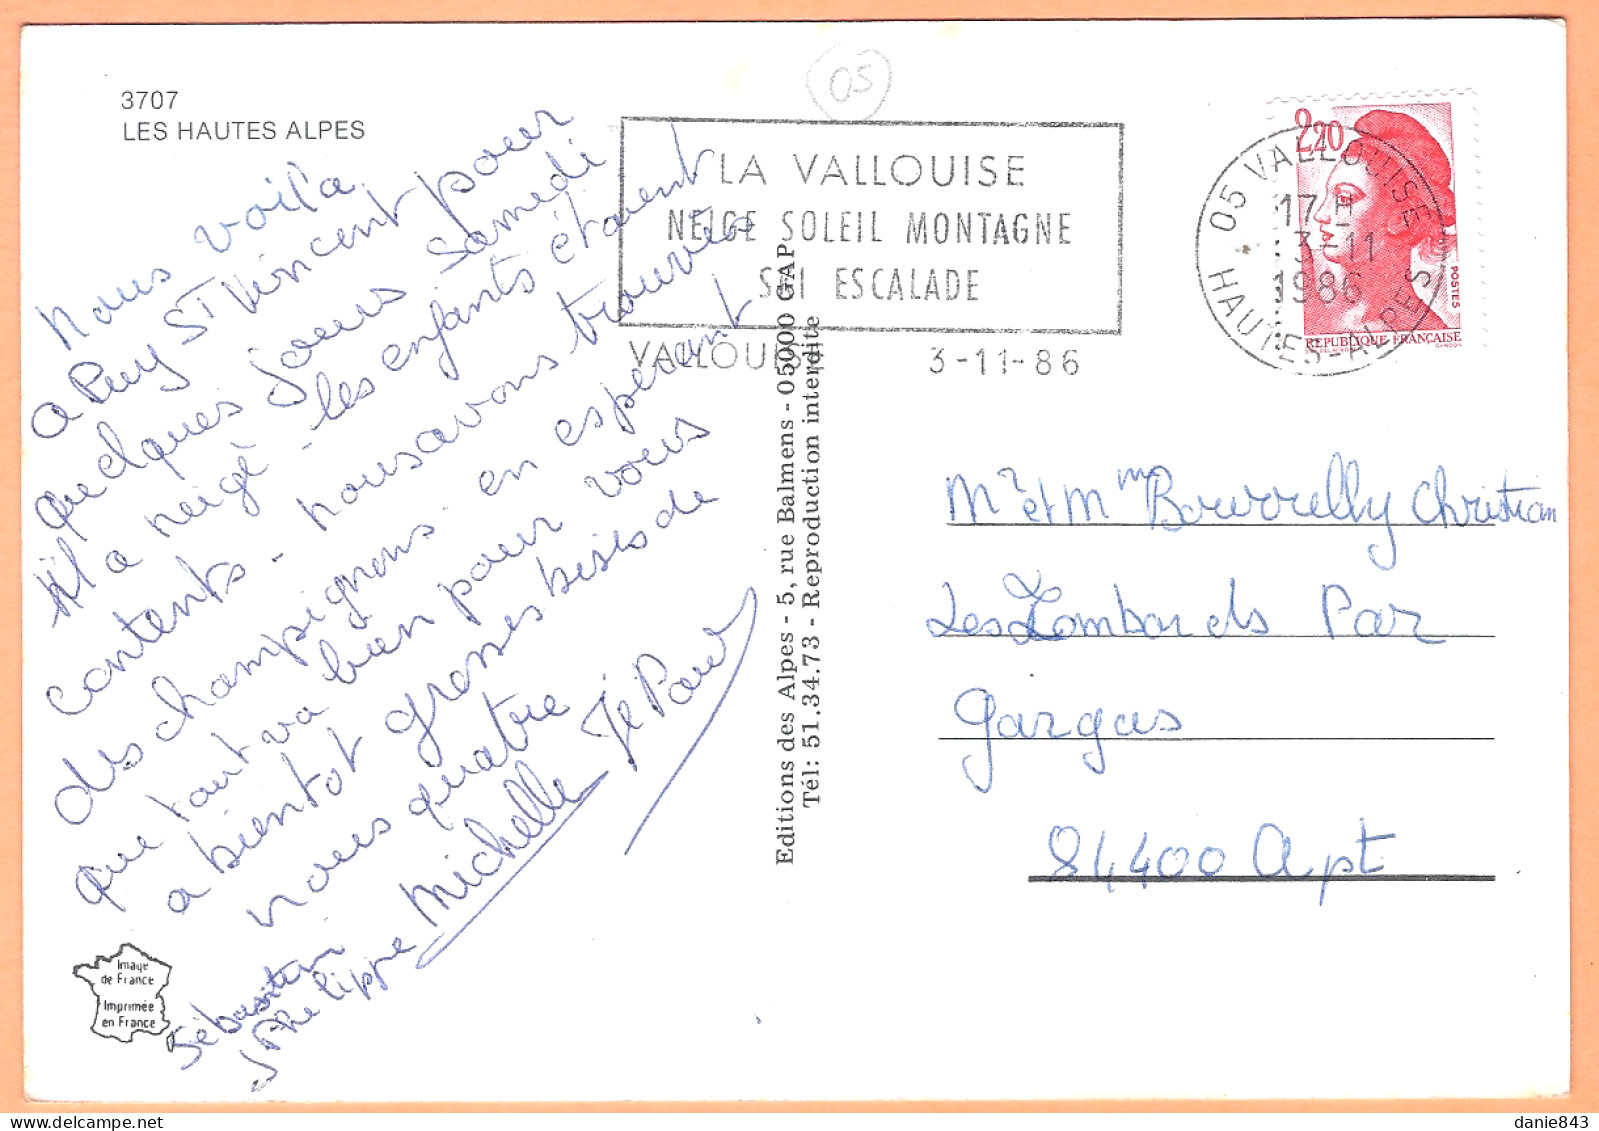 3707
LES HAUTES ALPES
Nous voilà
a Puy St Vincent pour
quelques jours samedi
il a neigé - les enfants étaient
contents - nous avons trouvés
des champignons - en espérant
que tout va bien pour vous
a bientot grosses bises de
nous quatre
Michelle
Sébastien
Philippe
05
LA VALLOUISE
NEIGE SOLEIL MONTAGNE
SKI ESCALADE
VALLOUISE 3-11-86
05 VALLOUISE
17 H
3-11
1986
HAUTES-ALPES
2,20
POSTES
REPUBLIQUE FRANÇAISE
Editions des Alpes - 5, rue Balmens - 05000 GAP
Tél: 51.34.73 - Reproduction interdite
Mr et Mme Christian
Les Lombards Par
Gargas
84400 Apt
Image
de France
Imprimée
en France
danie843